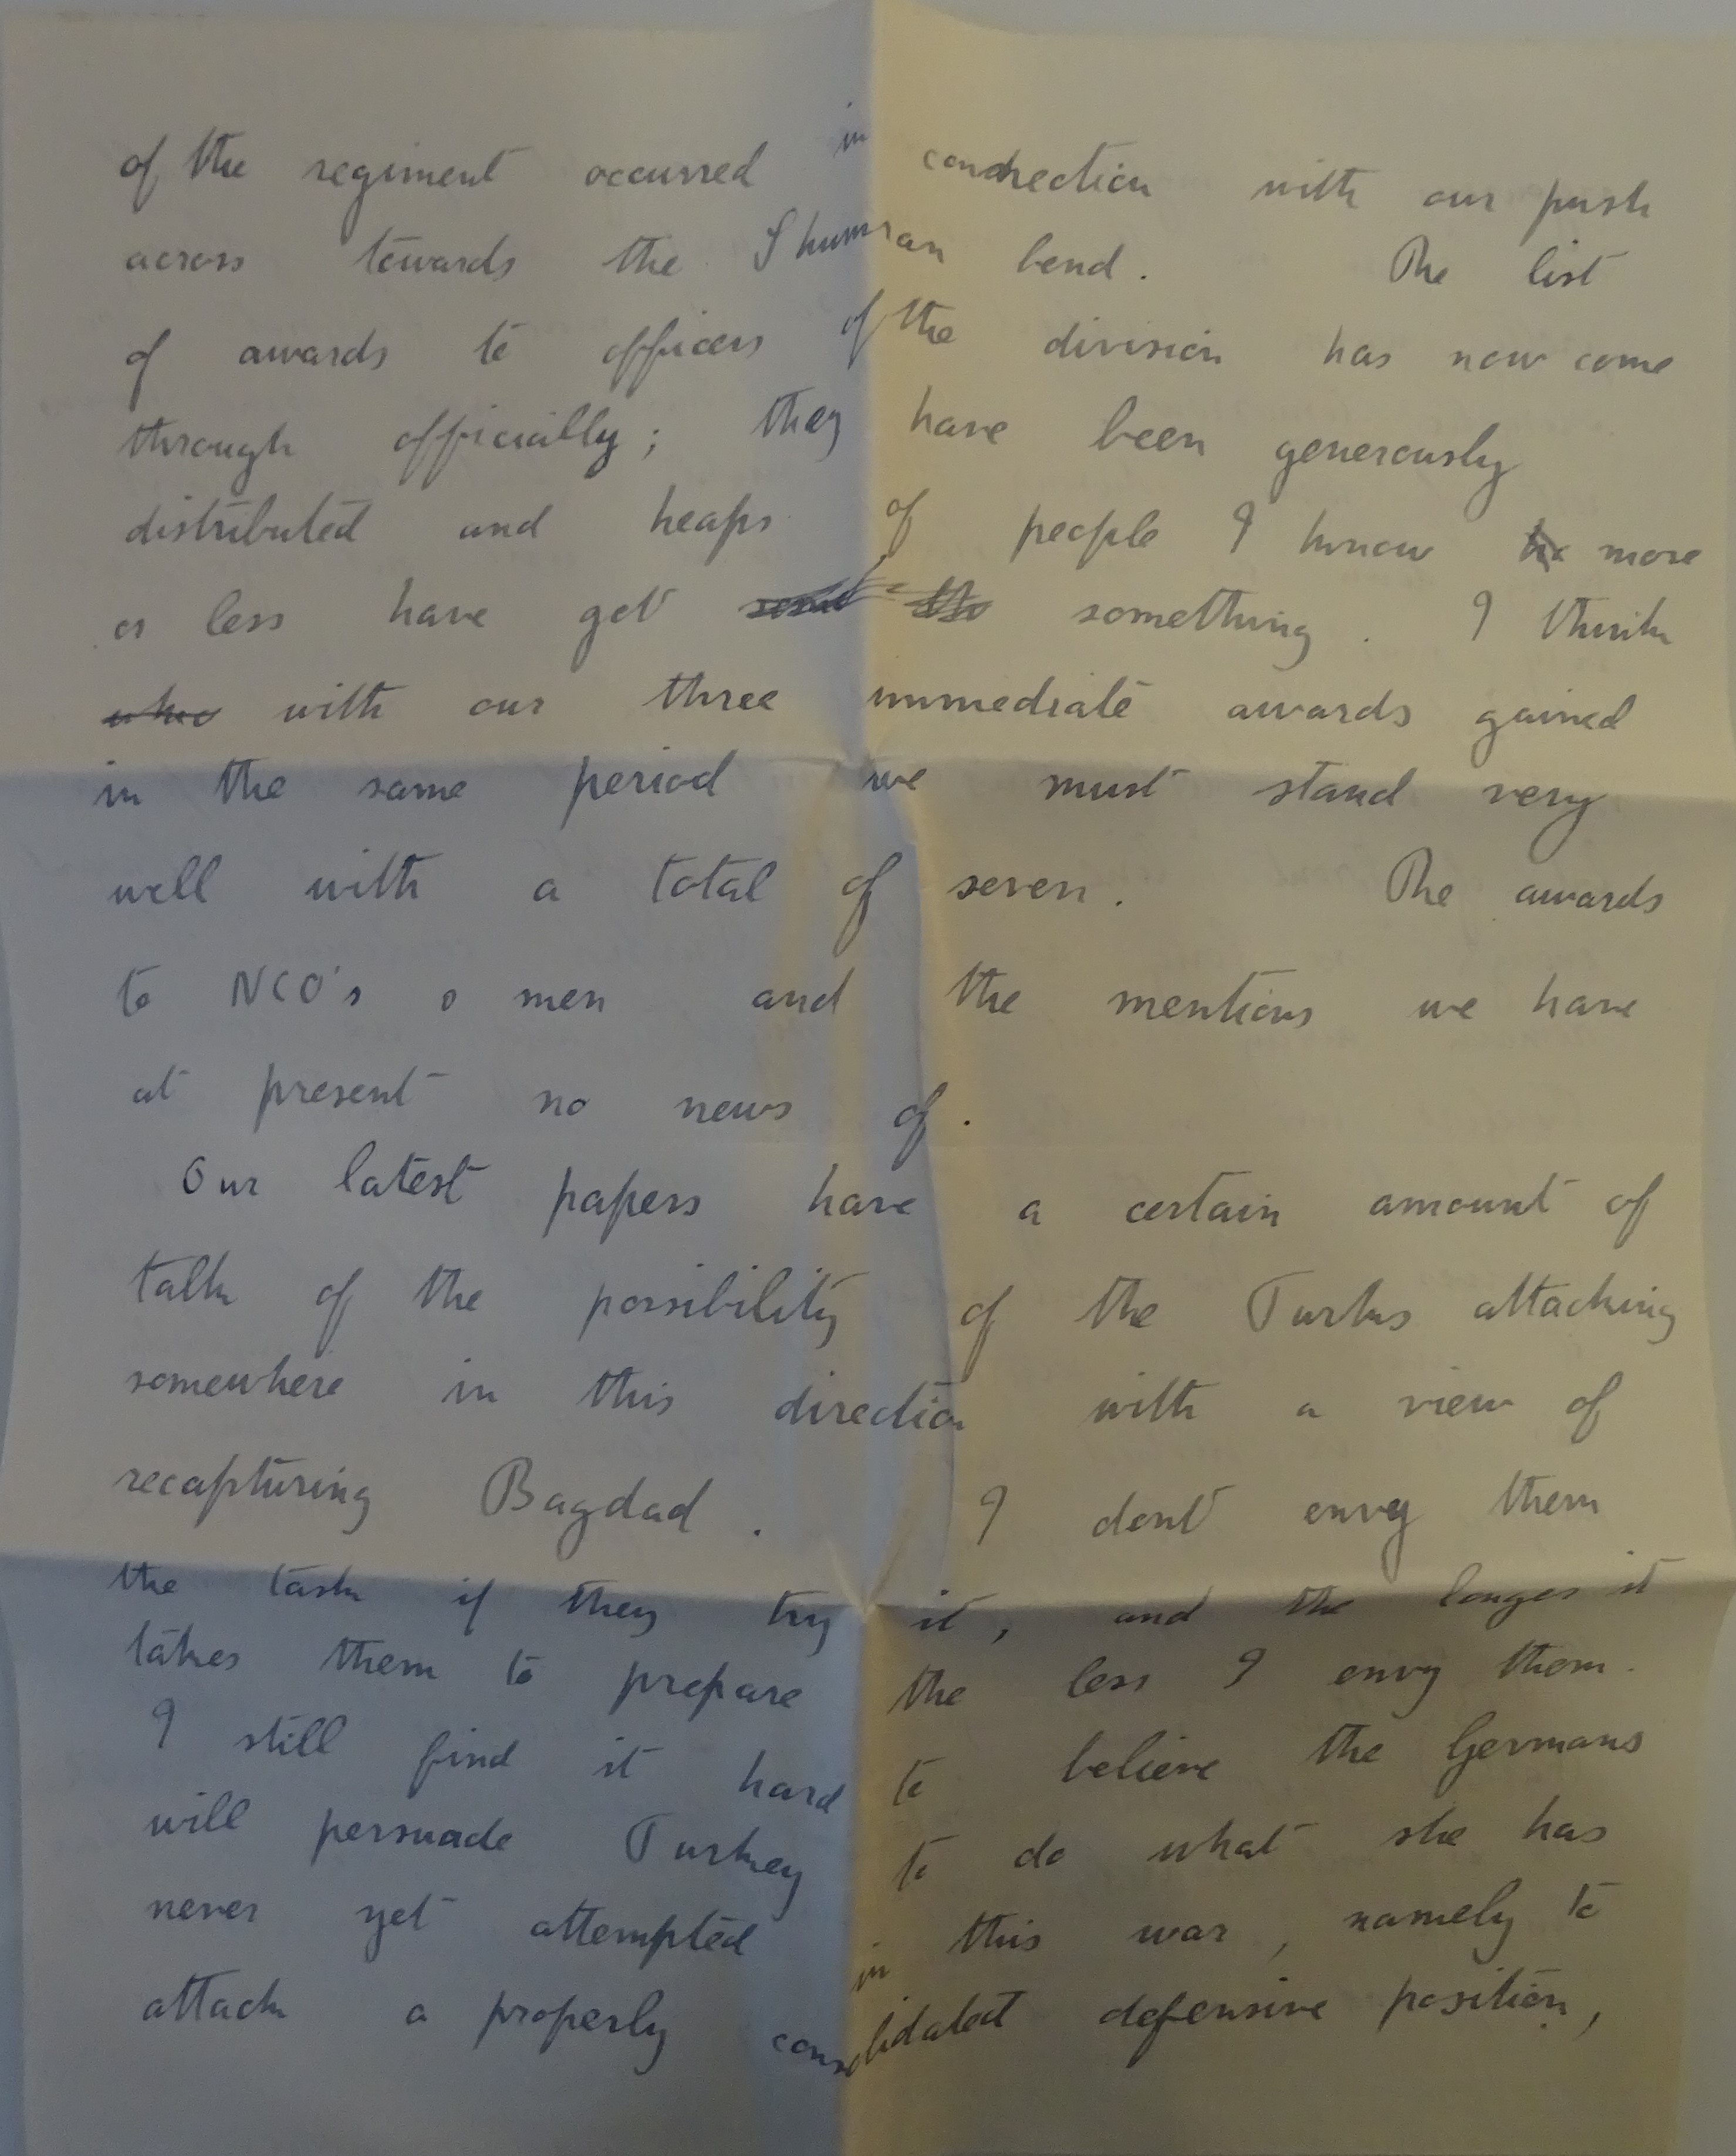 of the regiment occurred in connection with our push
across towards the Shumran bend. The list
of awards to officers of the division has now come
through officially; they have been generously
distributed and heaps of people I know more
or less have got something. I think
who with our three immediate awards gained
in the same period we must stand very
well with a total of seven. The awards
to NCO's o men and the mentions we have
at present no news of.
Our latest papers have a certain amount of
talk of the possibility of the Turks attacking
somewhere in this direction with a view of
recapturing Bagdad. I dont envy them
the task if they try it, and the longer it
takes them to prepare the less I envy them.
I still find it hard to believe the Germans
will persuade Turkey to do what she has
never yet attempted in this war, namely to
attack a properly consolidated defensive position,